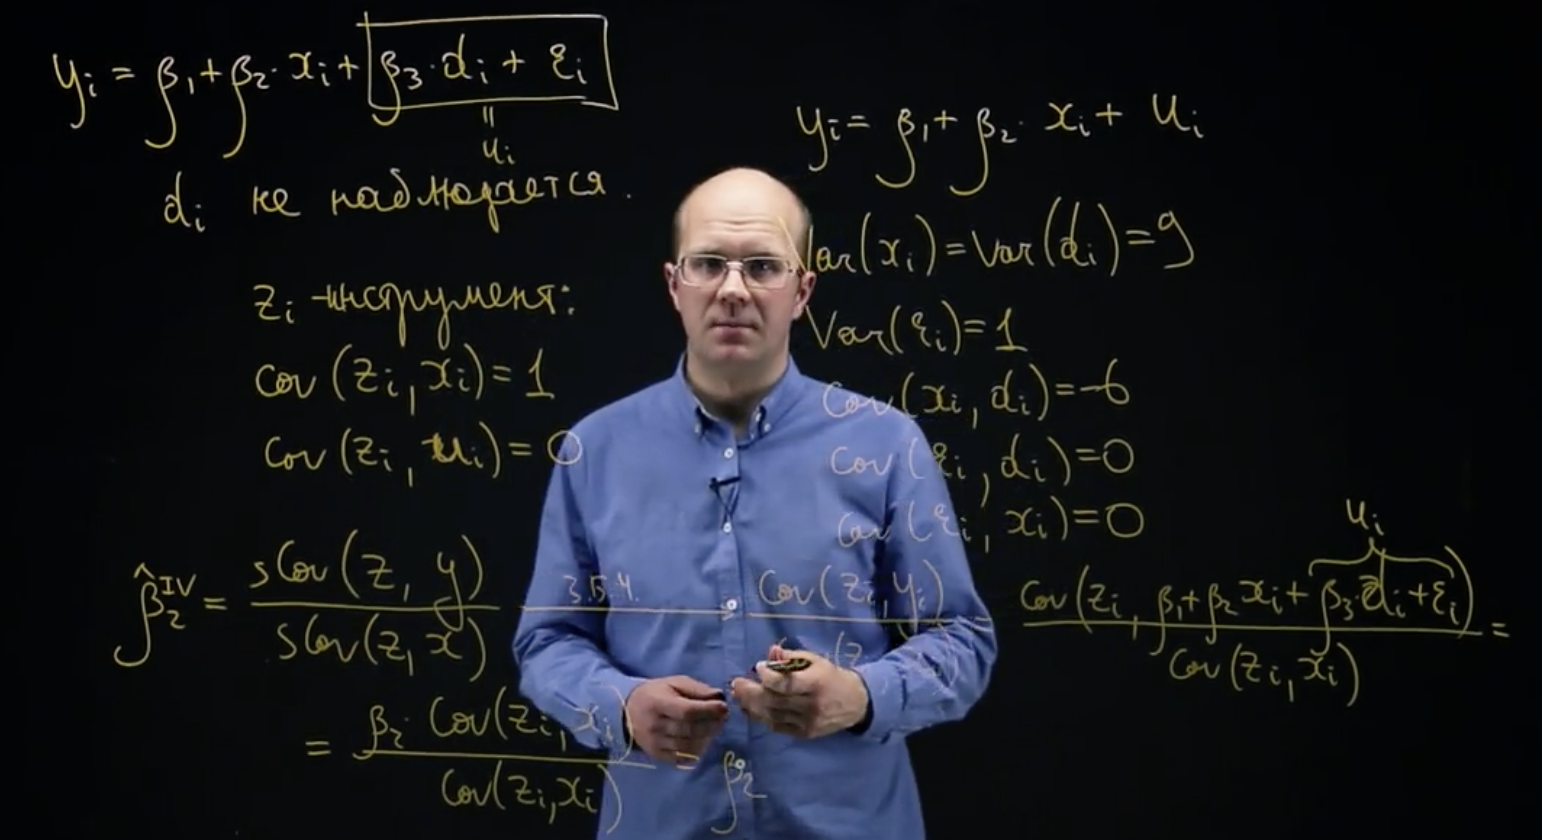 yᵢ = β₁ + β₂·xᵢ + β₃·dᵢ + εᵢ
"
uᵢ
dᵢ не наблюдается.
zᵢ - инструмент:
Cov(zᵢ, xᵢ) = 1
Cov(zᵢ, uᵢ) = 0
yᵢ = β₁ + β₂· xᵢ + uᵢ
Var(xᵢ) = Var(dᵢ) = 9
Var(εᵢ) = 1
Cov(xᵢ, dᵢ) = -6
Cov(εᵢ, dᵢ) = 0
Cov(εᵢ, xᵢ) = 0
uᵢ
β̂₂ᴵⱽ = sCov(z, y) / sCov(z, x) З.Б.Ч. → Cov(zᵢ, yᵢ) / = Cov(zᵢ, β₁ + β₂xᵢ + β₃·dᵢ + εᵢ) / Cov(zᵢ, xᵢ) =
= β₂· Cov(zᵢ, xᵢ) / Cov(zᵢ, xᵢ) = β₂